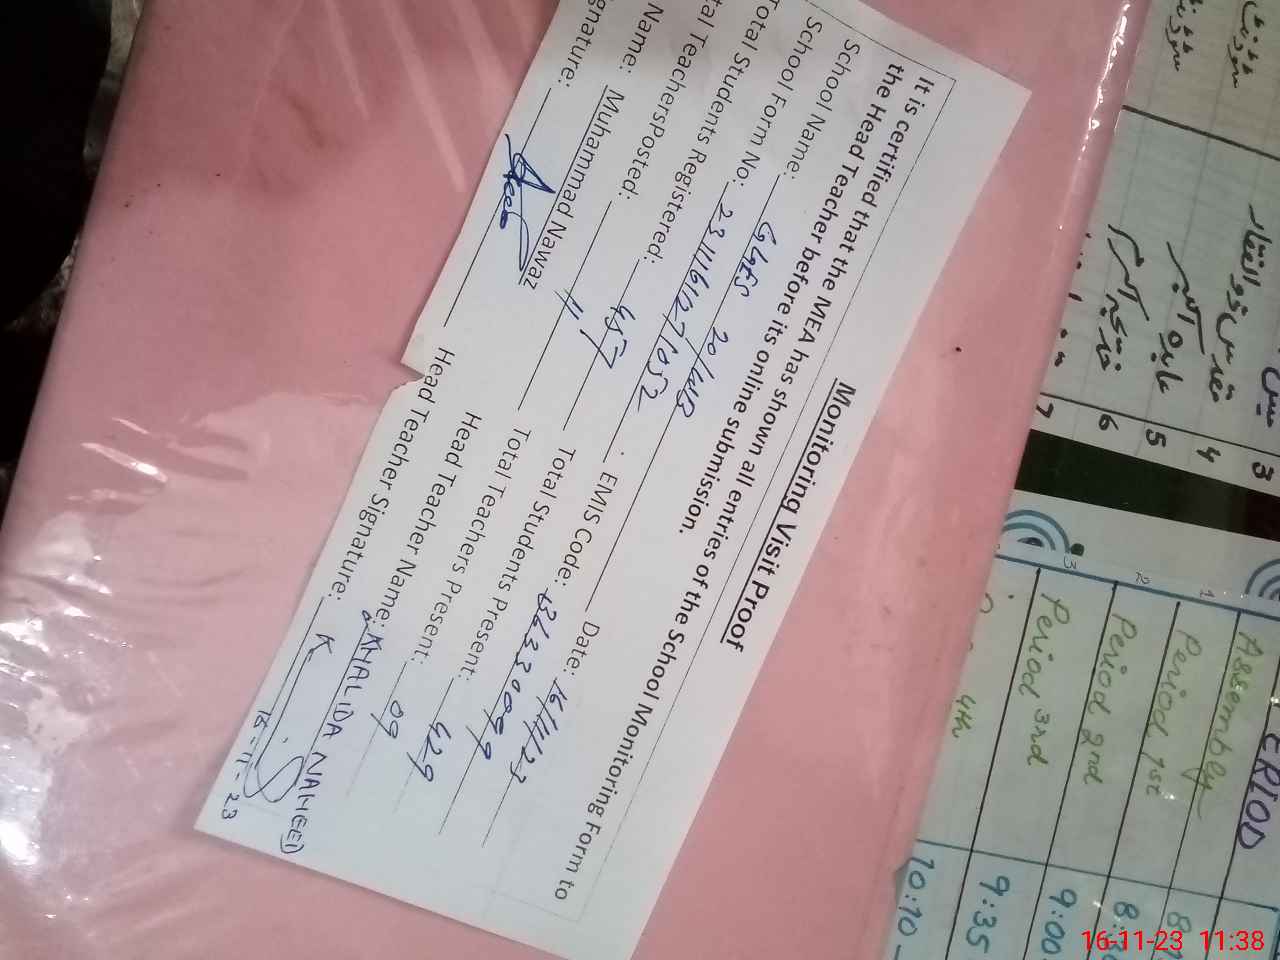 Monitoring Visit Proof
It is certified that the MEA has shown all entries of the School Monitoring Form to
the Head Teacher before its online submission.
School Name: GGES 20/WB Date: 16/11/23
School Form No: 23111611271052 EMIS Code: 36330099
Total Students Registered: 457 Total Students Present: 429
tal TeachersPosted: 11 Total Teachers Present: 09
Name: Muhammad Nawaz Head Teacher Name: KHALIDA NAHEED
gnature: Head Teacher Signature:
16-11-23
3
4
عابدہ اکبر 5
6
7
ERIOD
Assembly
1 Period 1st 8
2 Period 2nd 8:3
3 Period 3rd 9:00
4th 9:35
10:10-
16-11-23 11:38